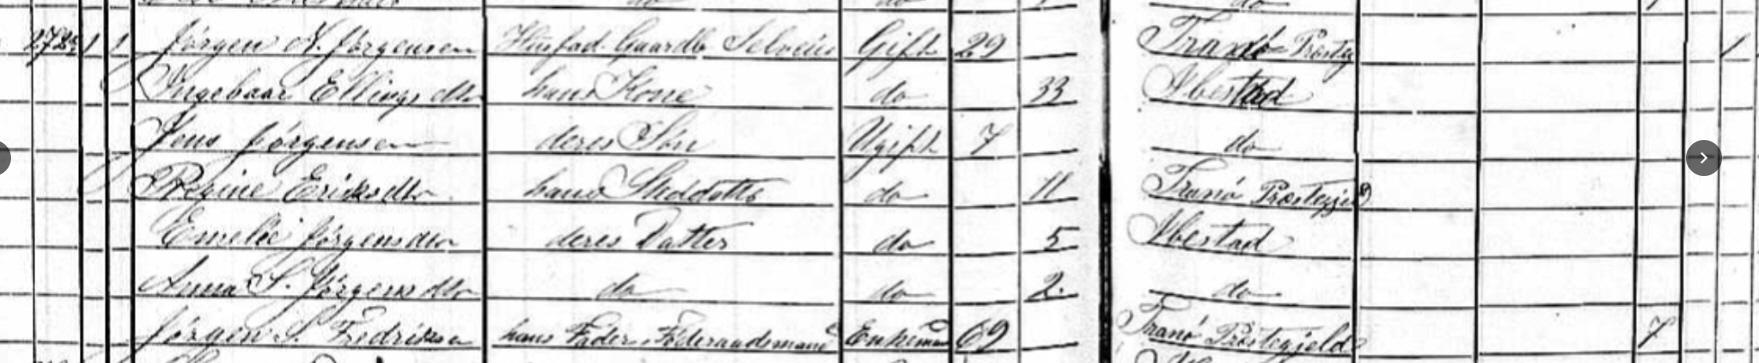 do do
272 1 1 Jørgen J. Jørgensen Husfad. Gaardb Selveier Gift 29 Tranø Præstegj 1
Ingebaar Ellingsdtr hans Kone do 33 Ibestad
Jens Jørgensen deres Søn Ugift 7 do
Regine Eriksdtr hans Steddatte do 11 Tranø Præstegjeld
Emelie Jørgensdtr deres Datter do 5 Ibestad
Anna S. Jørgensdtr do do 2 do
Jørgen S. Fredriksen hans Fader Føderaadsmand Enkemand 69 Tranø Præstegjeld 7